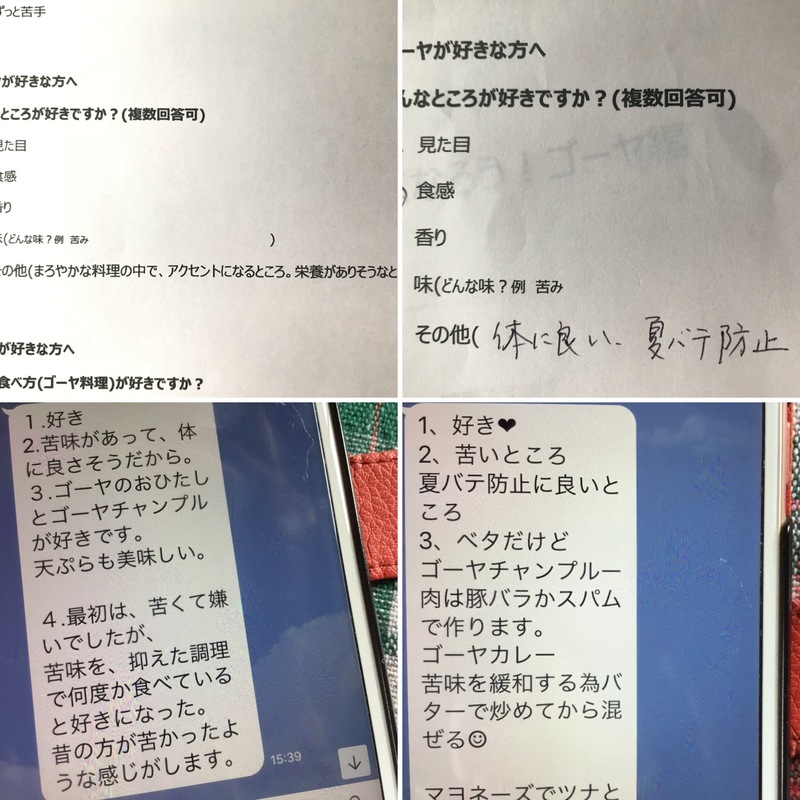 ずっと苦手
が好きな方へ
ところが好きですか？(複数回答可)
見た目
食感
香り
味(どんな味？例 苦み )
その他(まろやかな料理の中で、アクセントになるところ。栄養がありそうなと
が好きな方へ
食べ方(ゴーヤ料理)が好きですか？
ーヤが好きな方へ
んなところが好きですか？(複数回答可)
見た目
食感
香り
味(どんな味？例 苦み
その他( 体に良い、夏バテ防止
1.好き
2.苦味があって、体
に良さそうだから。
3.ゴーヤのおひたし
とゴーヤチャンプル
が好きです。
天ぷらも美味しい。
4.最初は、苦くて嫌
いでしたが、
苦味を、抑えた調理
で何度か食べている
と好きになった。
昔の方が苦かったよ
うな感じがします。
15:39
1、好き❤
2、苦いところ
夏バテ防止に良いと
ころ
3、ベタだけど
ゴーヤチャンプルー
肉は豚バラかスパム
で作ります。
ゴーヤカレー
苦味を緩和する為バ
ターで炒めてから混
ぜる☺
マヨネーズでツナと